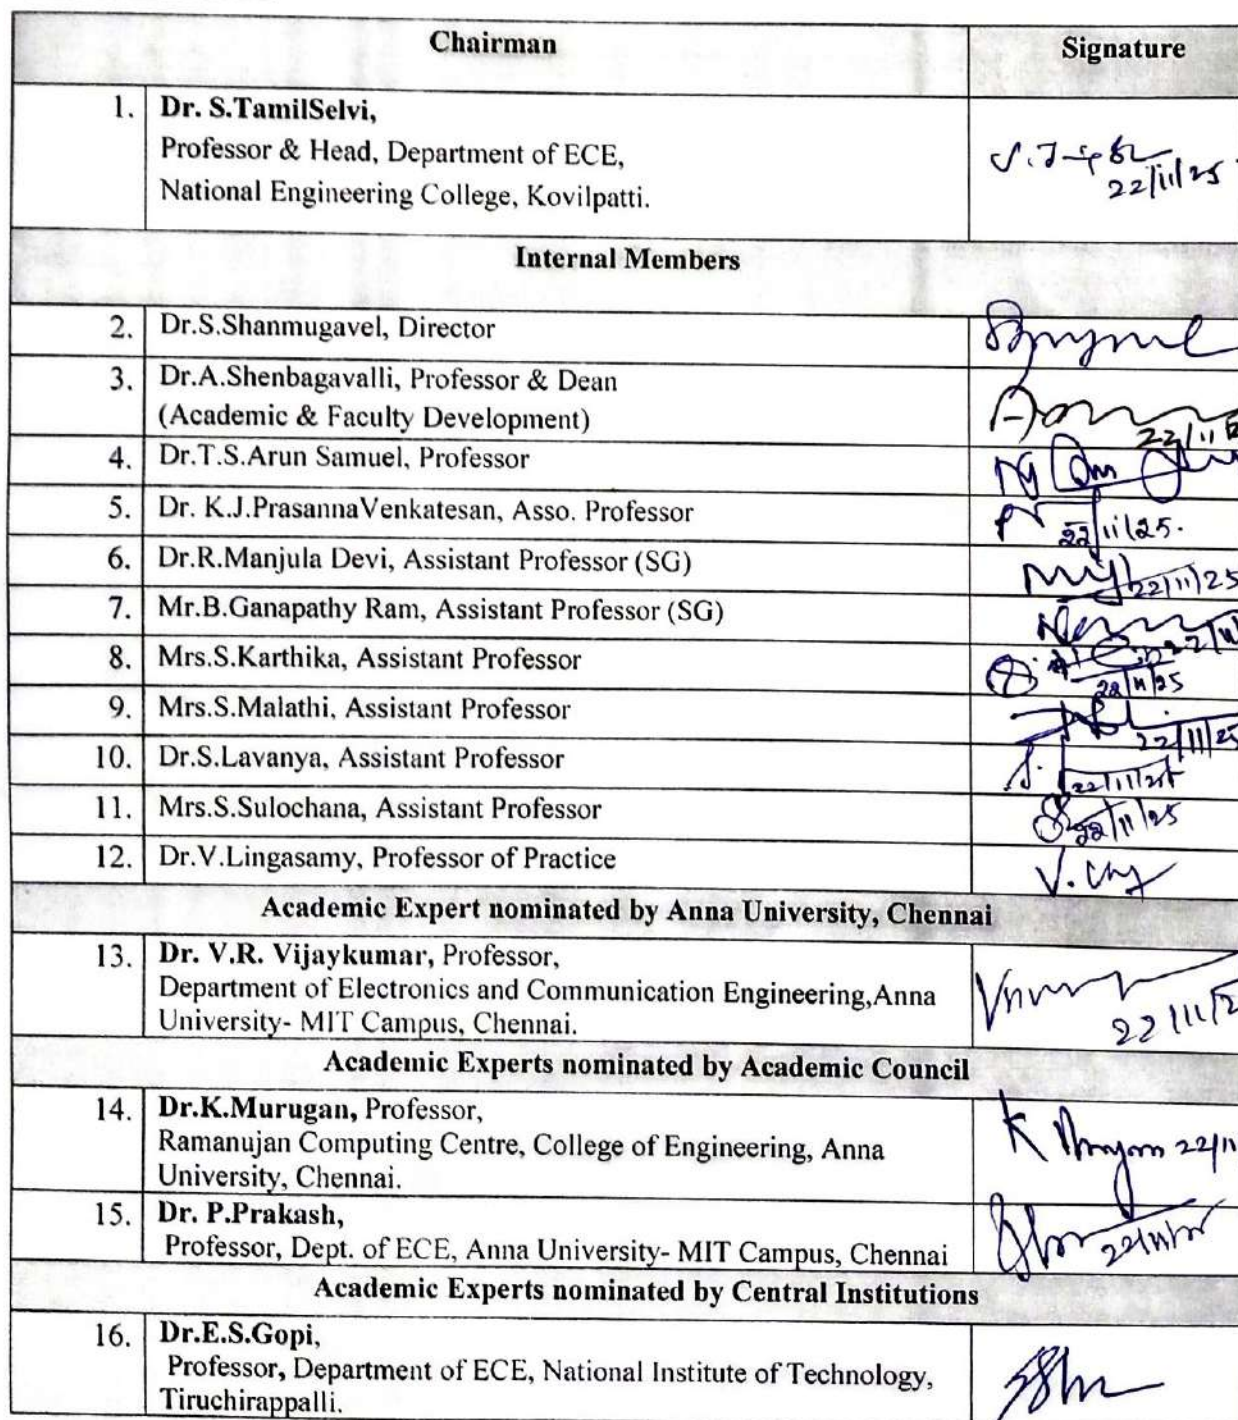 Chairman Signature
1. Dr. S.TamilSelvi,
Professor & Head, Department of ECE,
National Engineering College, Kovilpatti.
22/11/25
Internal Members
2. Dr.S.Shanmugavel, Director
3. Dr.A.Shenbagavalli, Professor & Dean
(Academic & Faculty Development)
22/11/2
4. Dr.T.S.Arun Samuel, Professor
5. Dr. K.J.PrasannaVenkatesan, Asso. Professor
22/11/25.
6. Dr.R.Manjula Devi, Assistant Professor (SG)
22/11/25
7. Mr.B.Ganapathy Ram, Assistant Professor (SG)
8. Mrs.S.Karthika, Assistant Professor
22/11/25
9. Mrs.S.Malathi, Assistant Professor
22/11/25
10. Dr.S.Lavanya, Assistant Professor
22/11/25
11. Mrs.S.Sulochana, Assistant Professor
22/11/25
12. Dr.V.Lingasamy, Professor of Practice
Academic Expert nominated by Anna University, Chennai
13. Dr. V.R. Vijaykumar, Professor,
Department of Electronics and Communication Engineering,Anna
University- MIT Campus, Chennai.
22/11/2
Academic Experts nominated by Academic Council
14. Dr.K.Murugan, Professor,
Ramanujan Computing Centre, College of Engineering, Anna
University, Chennai.
22/11
15. Dr. P.Prakash,
Professor, Dept. of ECE, Anna University- MIT Campus, Chennai
Academic Experts nominated by Central Institutions
16. Dr.E.S.Gopi,
Professor, Department of ECE, National Institute of Technology,
Tiruchirappalli.